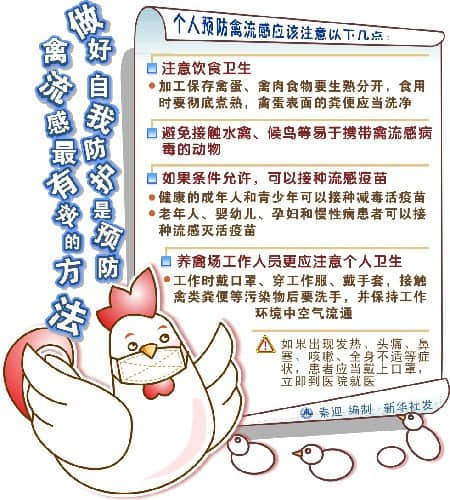 做好自我防护是预防
禽流感最有效的方法
个人预防禽流感应该注意以下几点:
注意饮食卫生
加工保存禽蛋、禽肉食物要生熟分开,食用
时要彻底煮熟,禽蛋表面的粪便应当洗净
避免接触水禽、候鸟等易于携带禽流感病
毒的动物
如果条件允许,可以接种流感疫苗
健康的成年人和青少年可以接种减毒活疫苗
老年人、婴幼儿、孕妇和慢性病患者可以接
种流感灭活疫苗
养禽场工作人员更应注意个人卫生
工作时戴口罩、穿工作服、戴手套,接触
禽类粪便等污染物后要洗手,并保持工作
环境中空气流通
如果出现发热、头痛、鼻
塞、咳嗽、全身不适等症
状,患者应当戴上口罩,
立即到医院就医
秦迎 编制 新华社发